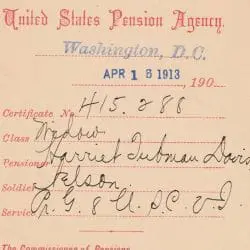 United States Pension Agency,
Washington, D.C.
APR 16 1913 , 190
Certificate No. 415.288
Class Widow
Pensioner Harriet Tubman Davis
Soldier Nelson
Service G. 8 U.S.C.V.I.
The Commissioner of Pensions.